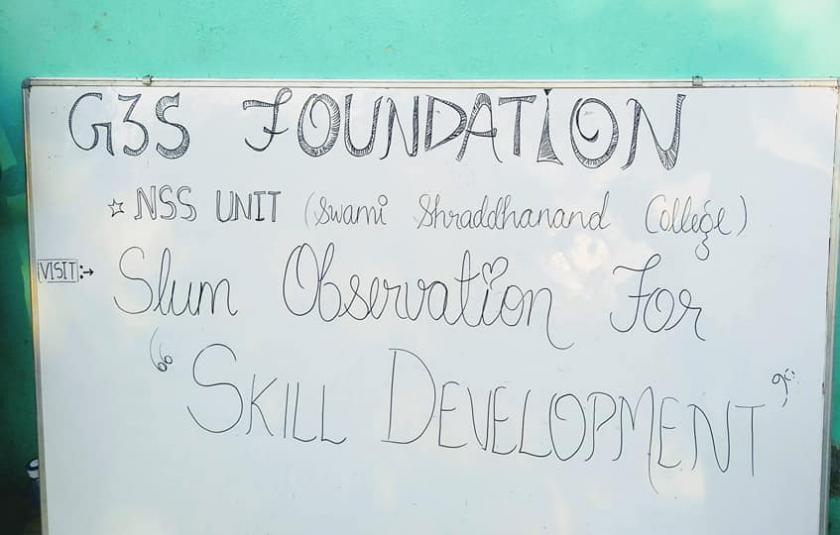 G3S FOUNDATION
☆ NSS UNIT (Swami Shraddhanand College)
VISIT:→ Slum Observation For
"SKILL DEVELOPMENT"